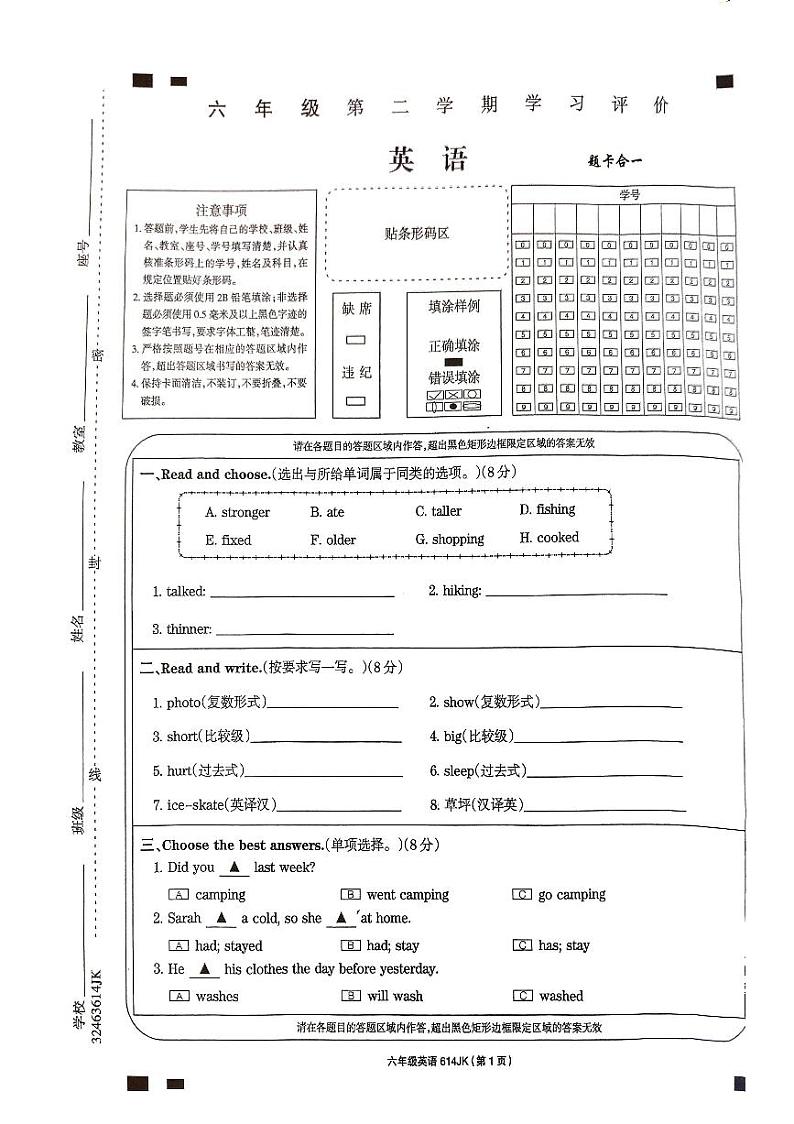 六年级第二学期学习评价
英语
题卡合一
注意事项
1.答题前,学生先将自己的学校、班级、姓
名、教室、座号、学号填写清楚,并认真
核准条形码上的学号,姓名及科目,在
规定位置贴好条形码。
2.选择题必须使用2B铅笔填涂;非选择
题必须使用0.5毫米及以上黑色字迹的
签字笔书写,要求字体工整,笔迹清楚。
3.严格按照题号在相应的答题区域内作
答,超出答题区域书写的答案无效。
4.保持卡面清洁,不装订,不要折叠,不要
破损。
贴条形码区
缺席
违纪
填涂样例
正确填涂
错误填涂
学号
0 0 0 0 0 0 0 0 0 0 0
1 1 1 1 1 1 1 1 1 1 1
2 2 2 2 2 2 2 2 2 2 2
3 3 3 3 3 3 3 3 3 3 3
4 4 4 4 4 4 4 4 4 4 4
5 5 5 5 5 5 5 5 5 5 5
6 6 6 6 6 6 6 6 6 6 6
7 7 7 7 7 7 7 7 7 7 7
8 8 8 8 8 8 8 8 8 8 8
9 9 9 9 9 9 9 9 9 9 9
座号
教室
姓名
班级
学校
密
封
线
32463614JK
请在各题目的答题区域内作答,超出黑色矩形边框限定区域的答案无效
一、Read and choose.(选出与所给单词属于同类的选项。)(8分)
A. stronger B. ate C. taller D. fishing
E. fixed F. older G. shopping H. cooked
1. talked: ________ 2. hiking: ________
3. thinner: ________
二、Read and write.(按要求写一写。)(8分)
1. photo(复数形式)________ 2. show(复数形式)________
3. short(比较级)________ 4. big(比较级)________
5. hurt(过去式)________ 6. sleep(过去式)________
7. ice-skate(英译汉)________ 8. 草坪(汉译英)________
三、Choose the best answers.(单项选择。)(8分)
1. Did you ▲ last week?
A camping B went camping C go camping
2. Sarah ▲ a cold, so she ▲ at home.
A had; stayed B had; stay C has; stay
3. He ▲ his clothes the day before yesterday.
A washes B will wash C washed
请在各题目的答题区域内作答,超出黑色矩形边框限定区域的答案无效
六年级英语 614JK(第1页)